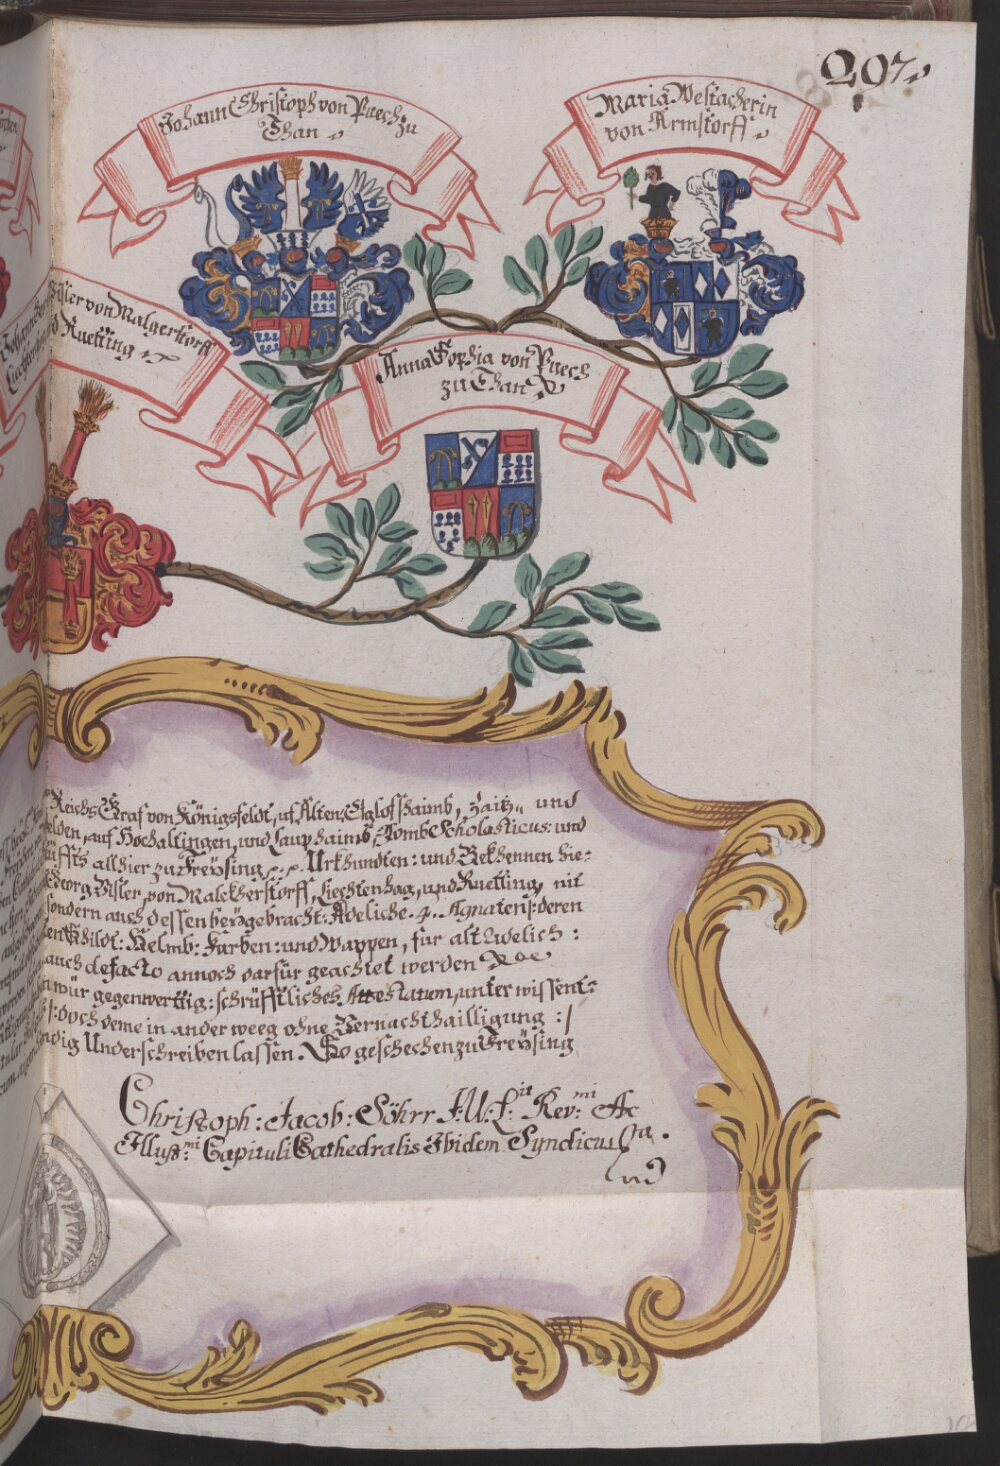 297.
Johann Christoph von Puech zu
Than
Maria Westacherin
von Armstorff
Pisler von Malgerstorff
Ruetting
Anna Sophia von Puech
zu Than
Reichs Graf von Königsfeldt, uf Alten: Eglofshaimb, Zaitz,, und
auf Hochaltingen, und Lauphaimb, Tomb Scholasticus: und
Stüffts allhier zu Freÿsing Urkhundten: und Bekhennen hie:
Georg Pisler, von Malckherstorff, Liechtenhag, und Ruetting, nit
sondern auch dessen beÿgebracht: Adeliche. 4. Agnaten|: deren
Schildt: Helmb: Farben: und Wappen, für alt Adelich:
auch de facto annoch darfür geachtet werden
wür gegenwerttig: schrüfftliches Attestatum, unter wissent:
|: doch deme in ander weeg ohne Vernachthailligung :|
Underschreiben lassen. So geschechen zu Freÿsing
Christoph: Jacob: Söhrr J: U: L: Rev:mi Ac
Illuss:mi Capituli Cathedralis Ibidem Syndicus